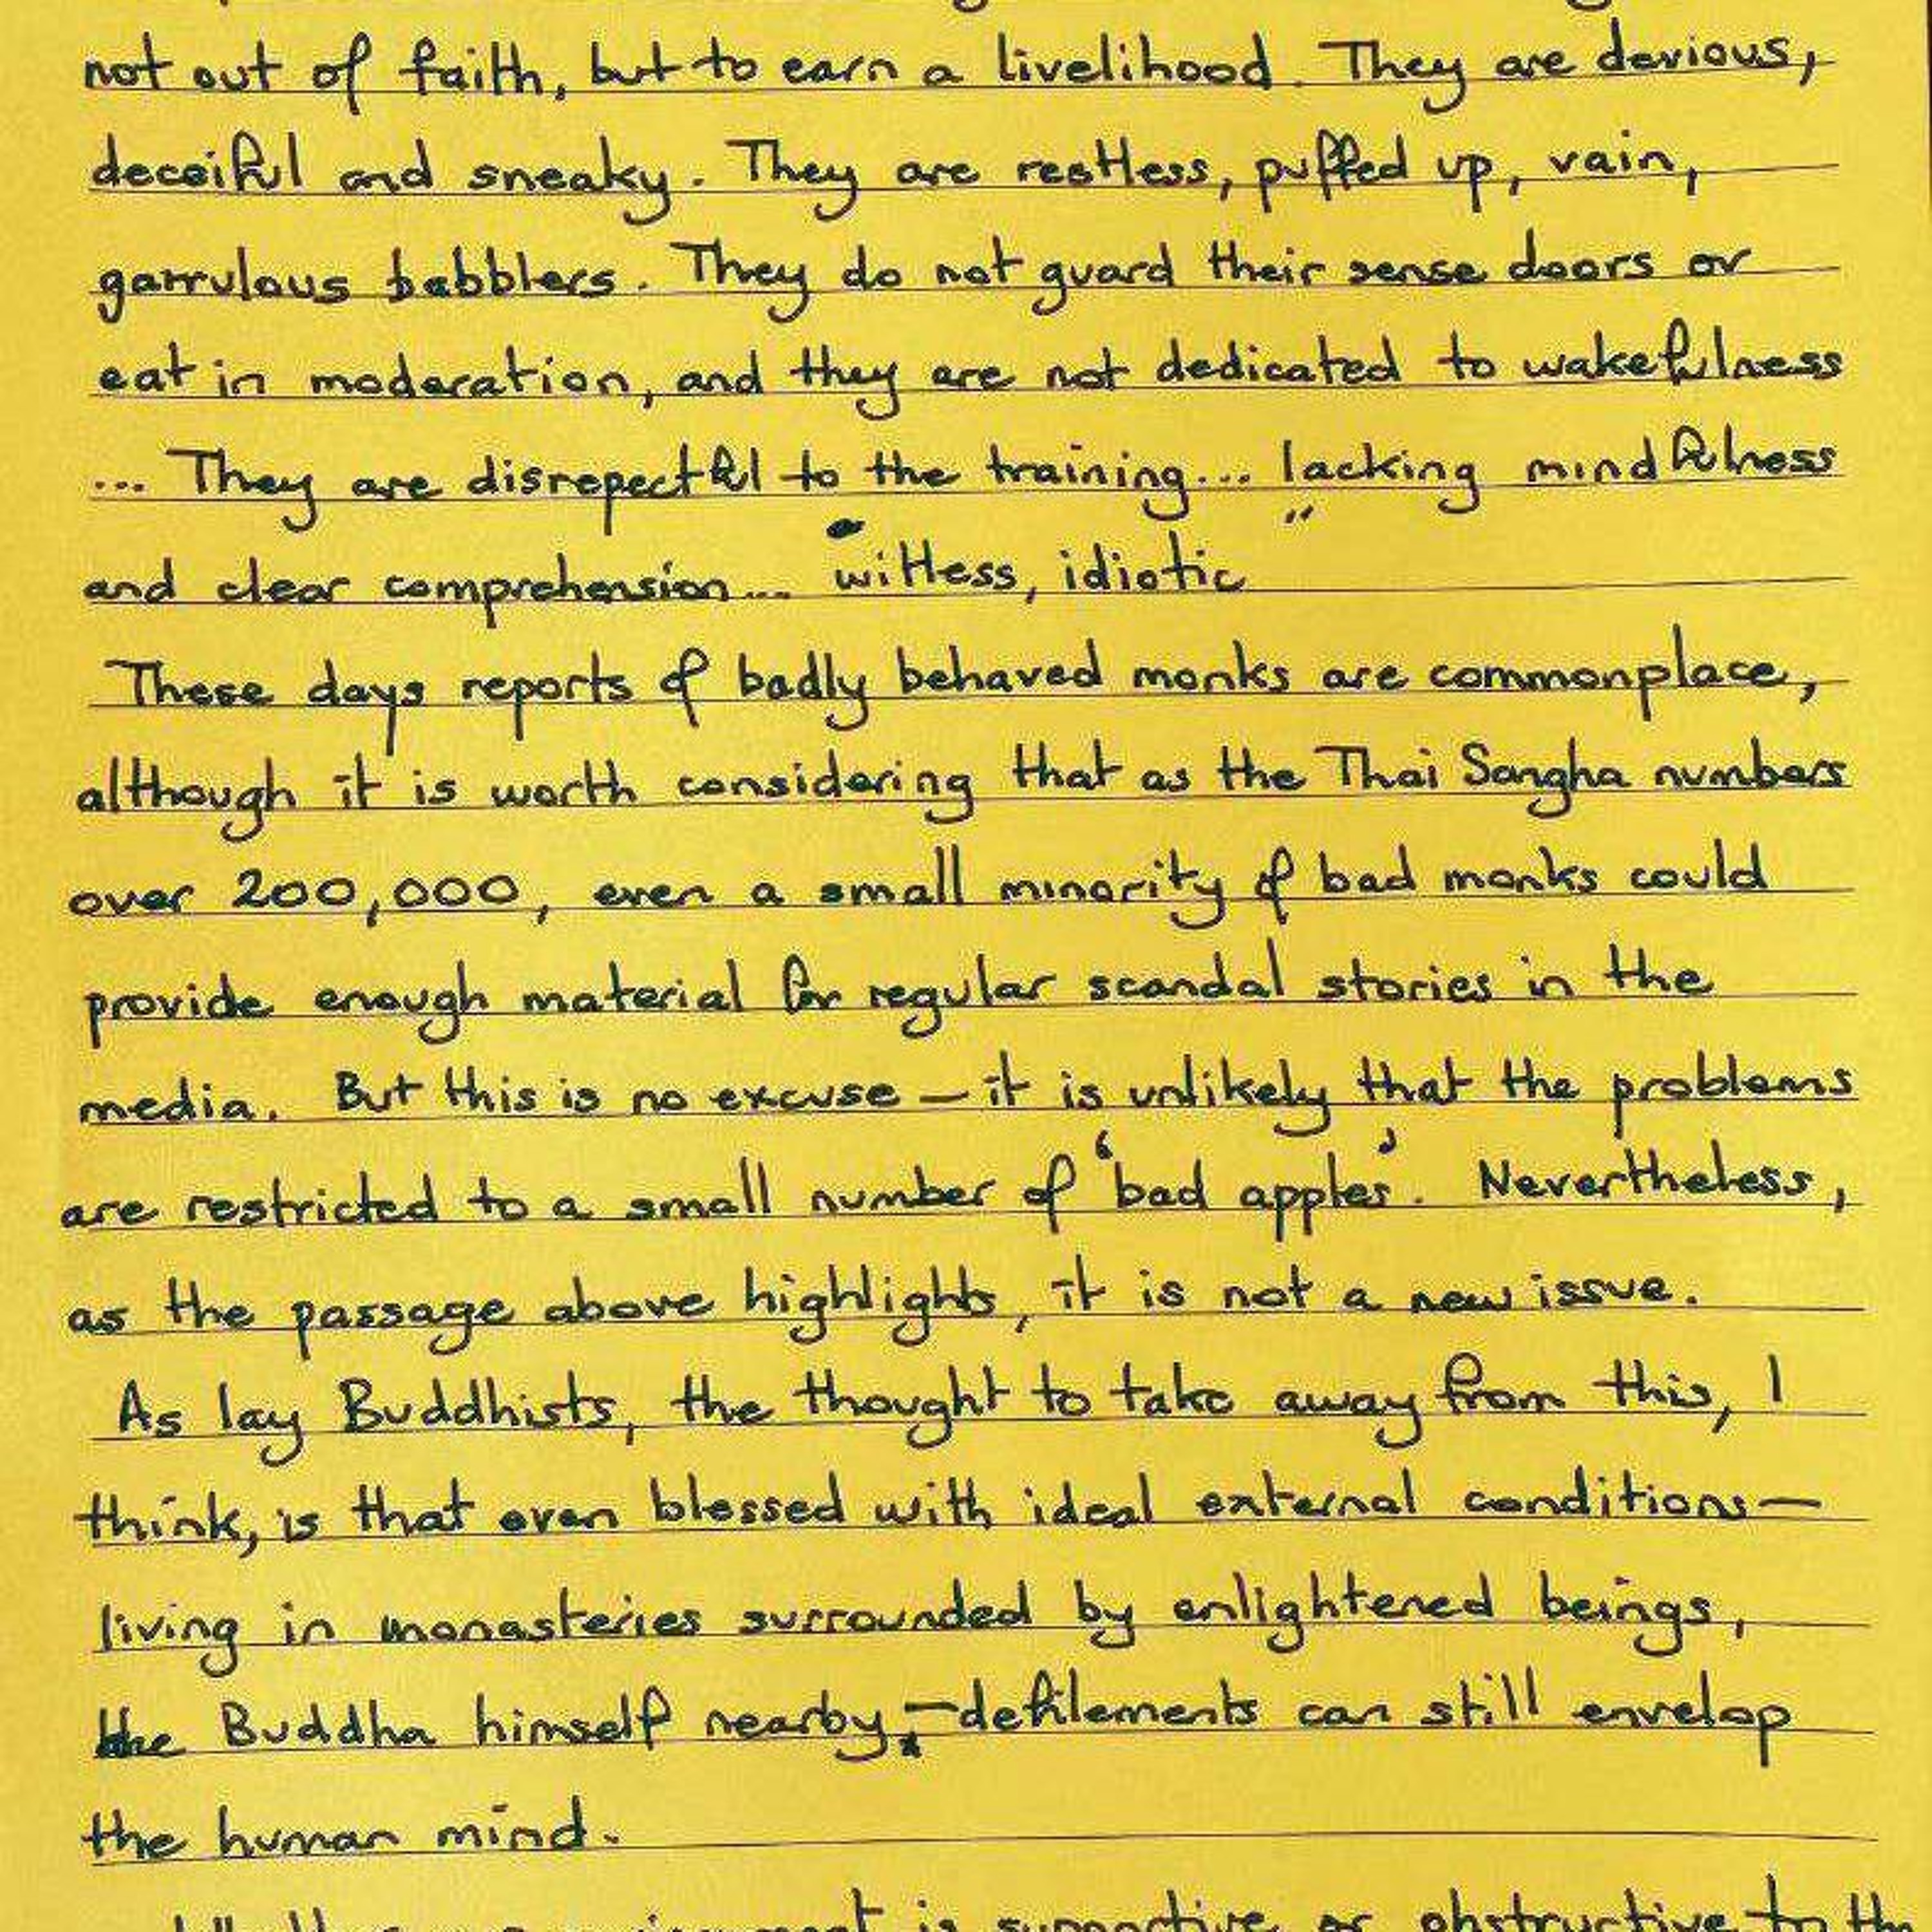 not out of faith, but to earn a livelihood. They are devious,
deceitful and sneaky. They are restless, puffed up, vain,
garrulous babblers. They do not guard their sense doors or
eat in moderation, and they are not dedicated to wakefulness
... They are disrepectful to the training... lacking mindfulness
and clear comprehension... witless, idiotic"
These days reports of badly behaved monks are commonplace,
although it is worth considering that as the Thai Sangha numbers
over 200,000, even a small minority of bad monks could
provide enough material for regular scandal stories in the
media. But this is no excuse – it is unlikely that the problems
are restricted to a small number of 'bad apples'. Nevertheless,
as the passage above highlights, it is not a new issue.
As lay Buddhists, the thought to take away from this, I
think, is that even blessed with ideal external conditions –
living in monasteries surrounded by enlightened beings,
the Buddha himself nearby, – defilements can still envelop
the human mind.
is supportive or obstructive to